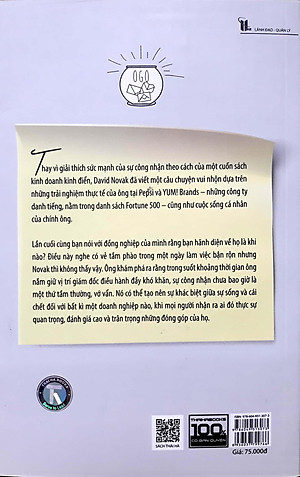 LÃNH ĐẠO - QUẢN LÝ
OGO
Thay vì giải thích sức mạnh của sự công nhận theo cách của một cuốn sách
kinh doanh kinh điển, David Novak đã viết một câu chuyện vui nhộn dựa trên
những trải nghiệm thực tế của ông tại Pepsi và YUM! Brands – những công ty
danh tiếng, nằm trong danh sách Fortune 500 – cũng như cuộc sống cá nhân
của chính ông.
Lần cuối cùng bạn nói với đồng nghiệp của mình rằng bạn hãnh diện về họ là khi
nào? Điều này nghe có vẻ tầm phào trong một ngày làm việc bận rộn nhưng
Novak thì không thấy vậy. Ông khám phá ra rằng trong suốt khoảng thời gian ông
nắm giữ vị trí giám đốc điều hành đầy khó khăn, sự công nhận chưa bao giờ là
một thứ tầm thường, vớ vẩn. Nó có thể tạo nên sự khác biệt giữa sự sống và cái
chết đối với bất kì một doanh nghiệp nào, khi mọi người nhận ra ai đó thực sự
quan trọng, đánh giá cao và trân trọng những đóng góp của họ.
SÁCH THÁI HÀ
THAIHABOOKS
100%
CÓ BẢN QUYỀN
Giá: 75.000đ